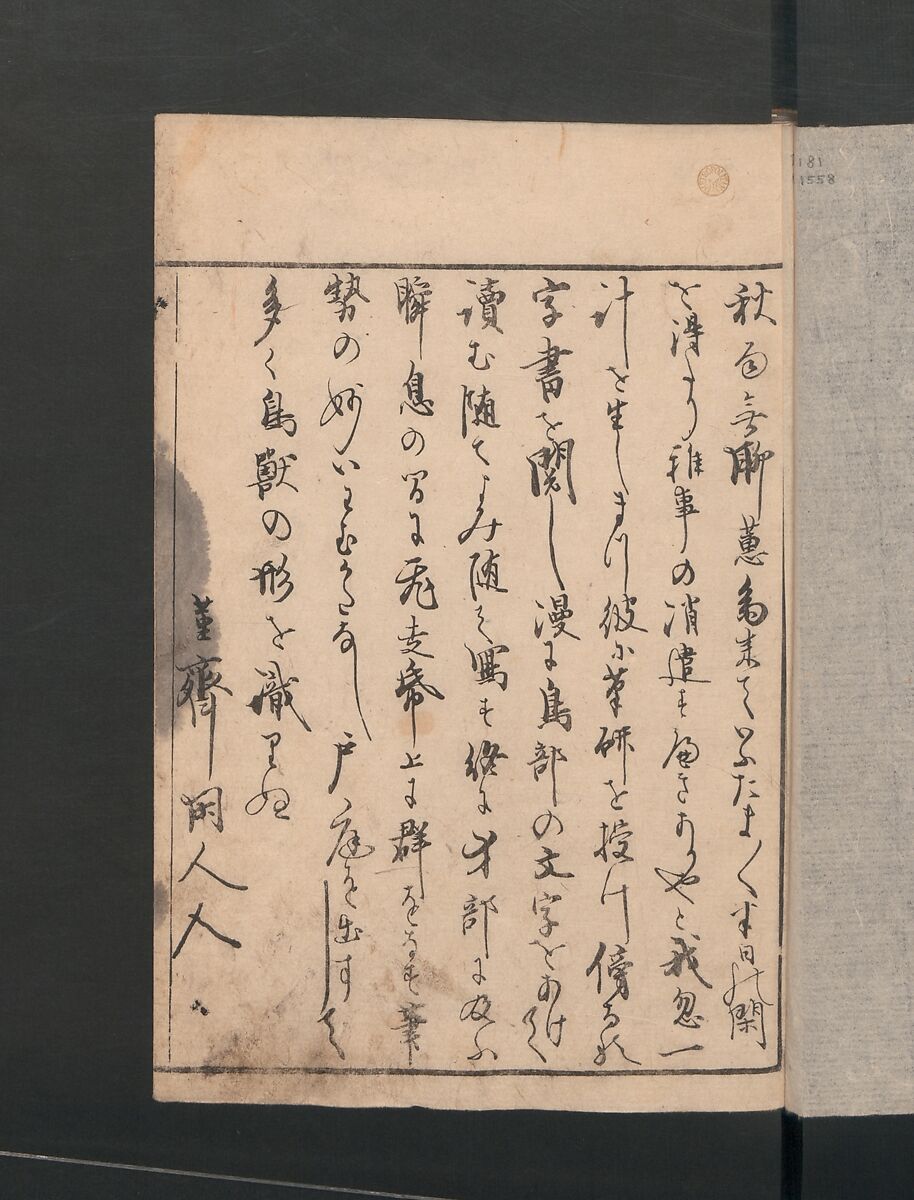 秋雨無聊蕙斎来ていふたま〱半日の閑
を得たり雅事の消遣すへきありやと我忽一
計を生しまつ彼に筆研を授け傍なる
字書を閲し漫に鳥部の文字をあけて
讀む随てよみ随て写す終に犬部に及ふ
瞬息の間に飛走帋上に群をなす筆
勢の妙いはむかたなし戸庭を出すして
多く鳥獣の形を識りぬ
菫齋閑人人
181
1558